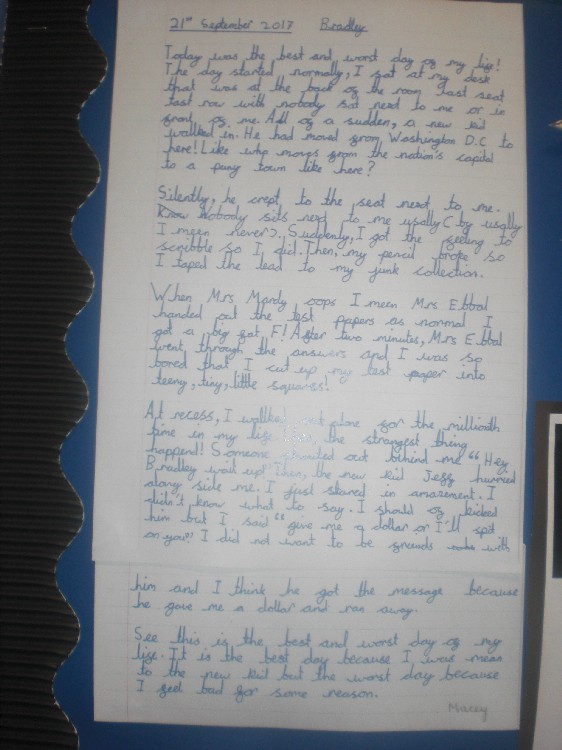 21st September 2017 Bradley
Today was the best and worst day of my life!
The day started normally, I sat at my desk
that was at the back of the room last seat
last row with nobody sat next to me or in
front of me. All of a sudden, a new kid
wallked in. He had moved from Washington D.C to
here! Like who moves from the nation's capital
to a puny town like here?
Silently, he crept to the seat next to me.
Know Nobody sits next to me usally (by usally
I meen never). Suddenly, I got the feeling to
scribble so I did. Then, my pencil broke so
I taped the lead to my junk collection.
When Mrs Mardy oops I meen Mrs Ebbal
handed out the test papers as normal I
got a big fat F! After two minutes, Mrs Ebbal
went through the answers and I was so
bored that I cut up my test paper into
teeny, tiny, little squares!
At recess, I wallked out alone for the millionth
time in my life. the strangest thing
happend! Someone shouted out behind me "Hey,
Bradley wait up! Then, the new kid Jeff hurried
along side me. I just stared in amazement. I
didn't know what to say. I should of kicked
him but I said "give me a dollar or I'll spit
on you"! I did not want to be freinds with
him and I think he got the message because
he gave me a dollar and ran away.
See this is the best and worst day of my
life. It is the best day because I was mean
to the new kid but the worst day because
I feel bad for some reason.
Macey